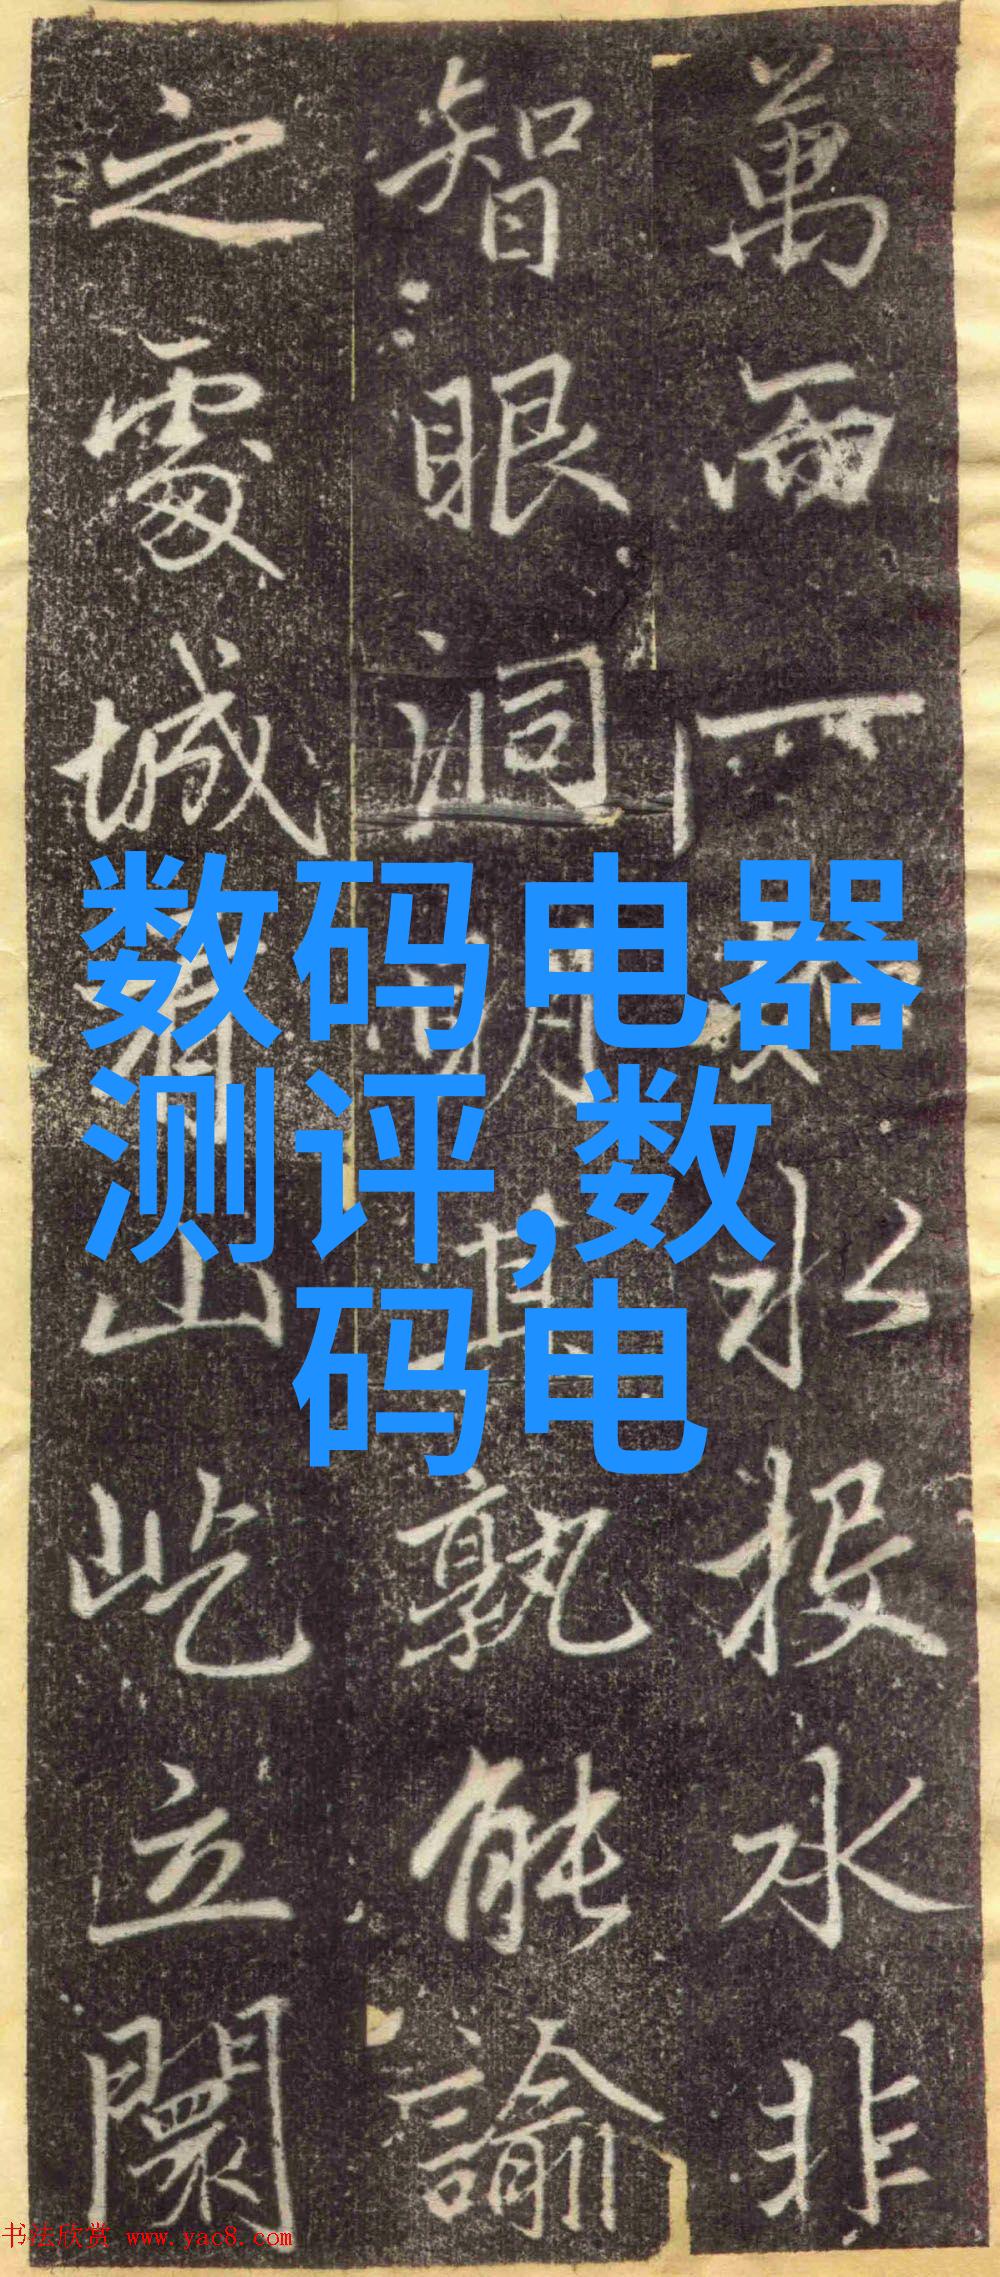 萬而一
水投水非
智眼洞
孰能諭
之靈城
山屹立闕
数码电器
测评,数
码电
书法欣赏 www.yac8.com